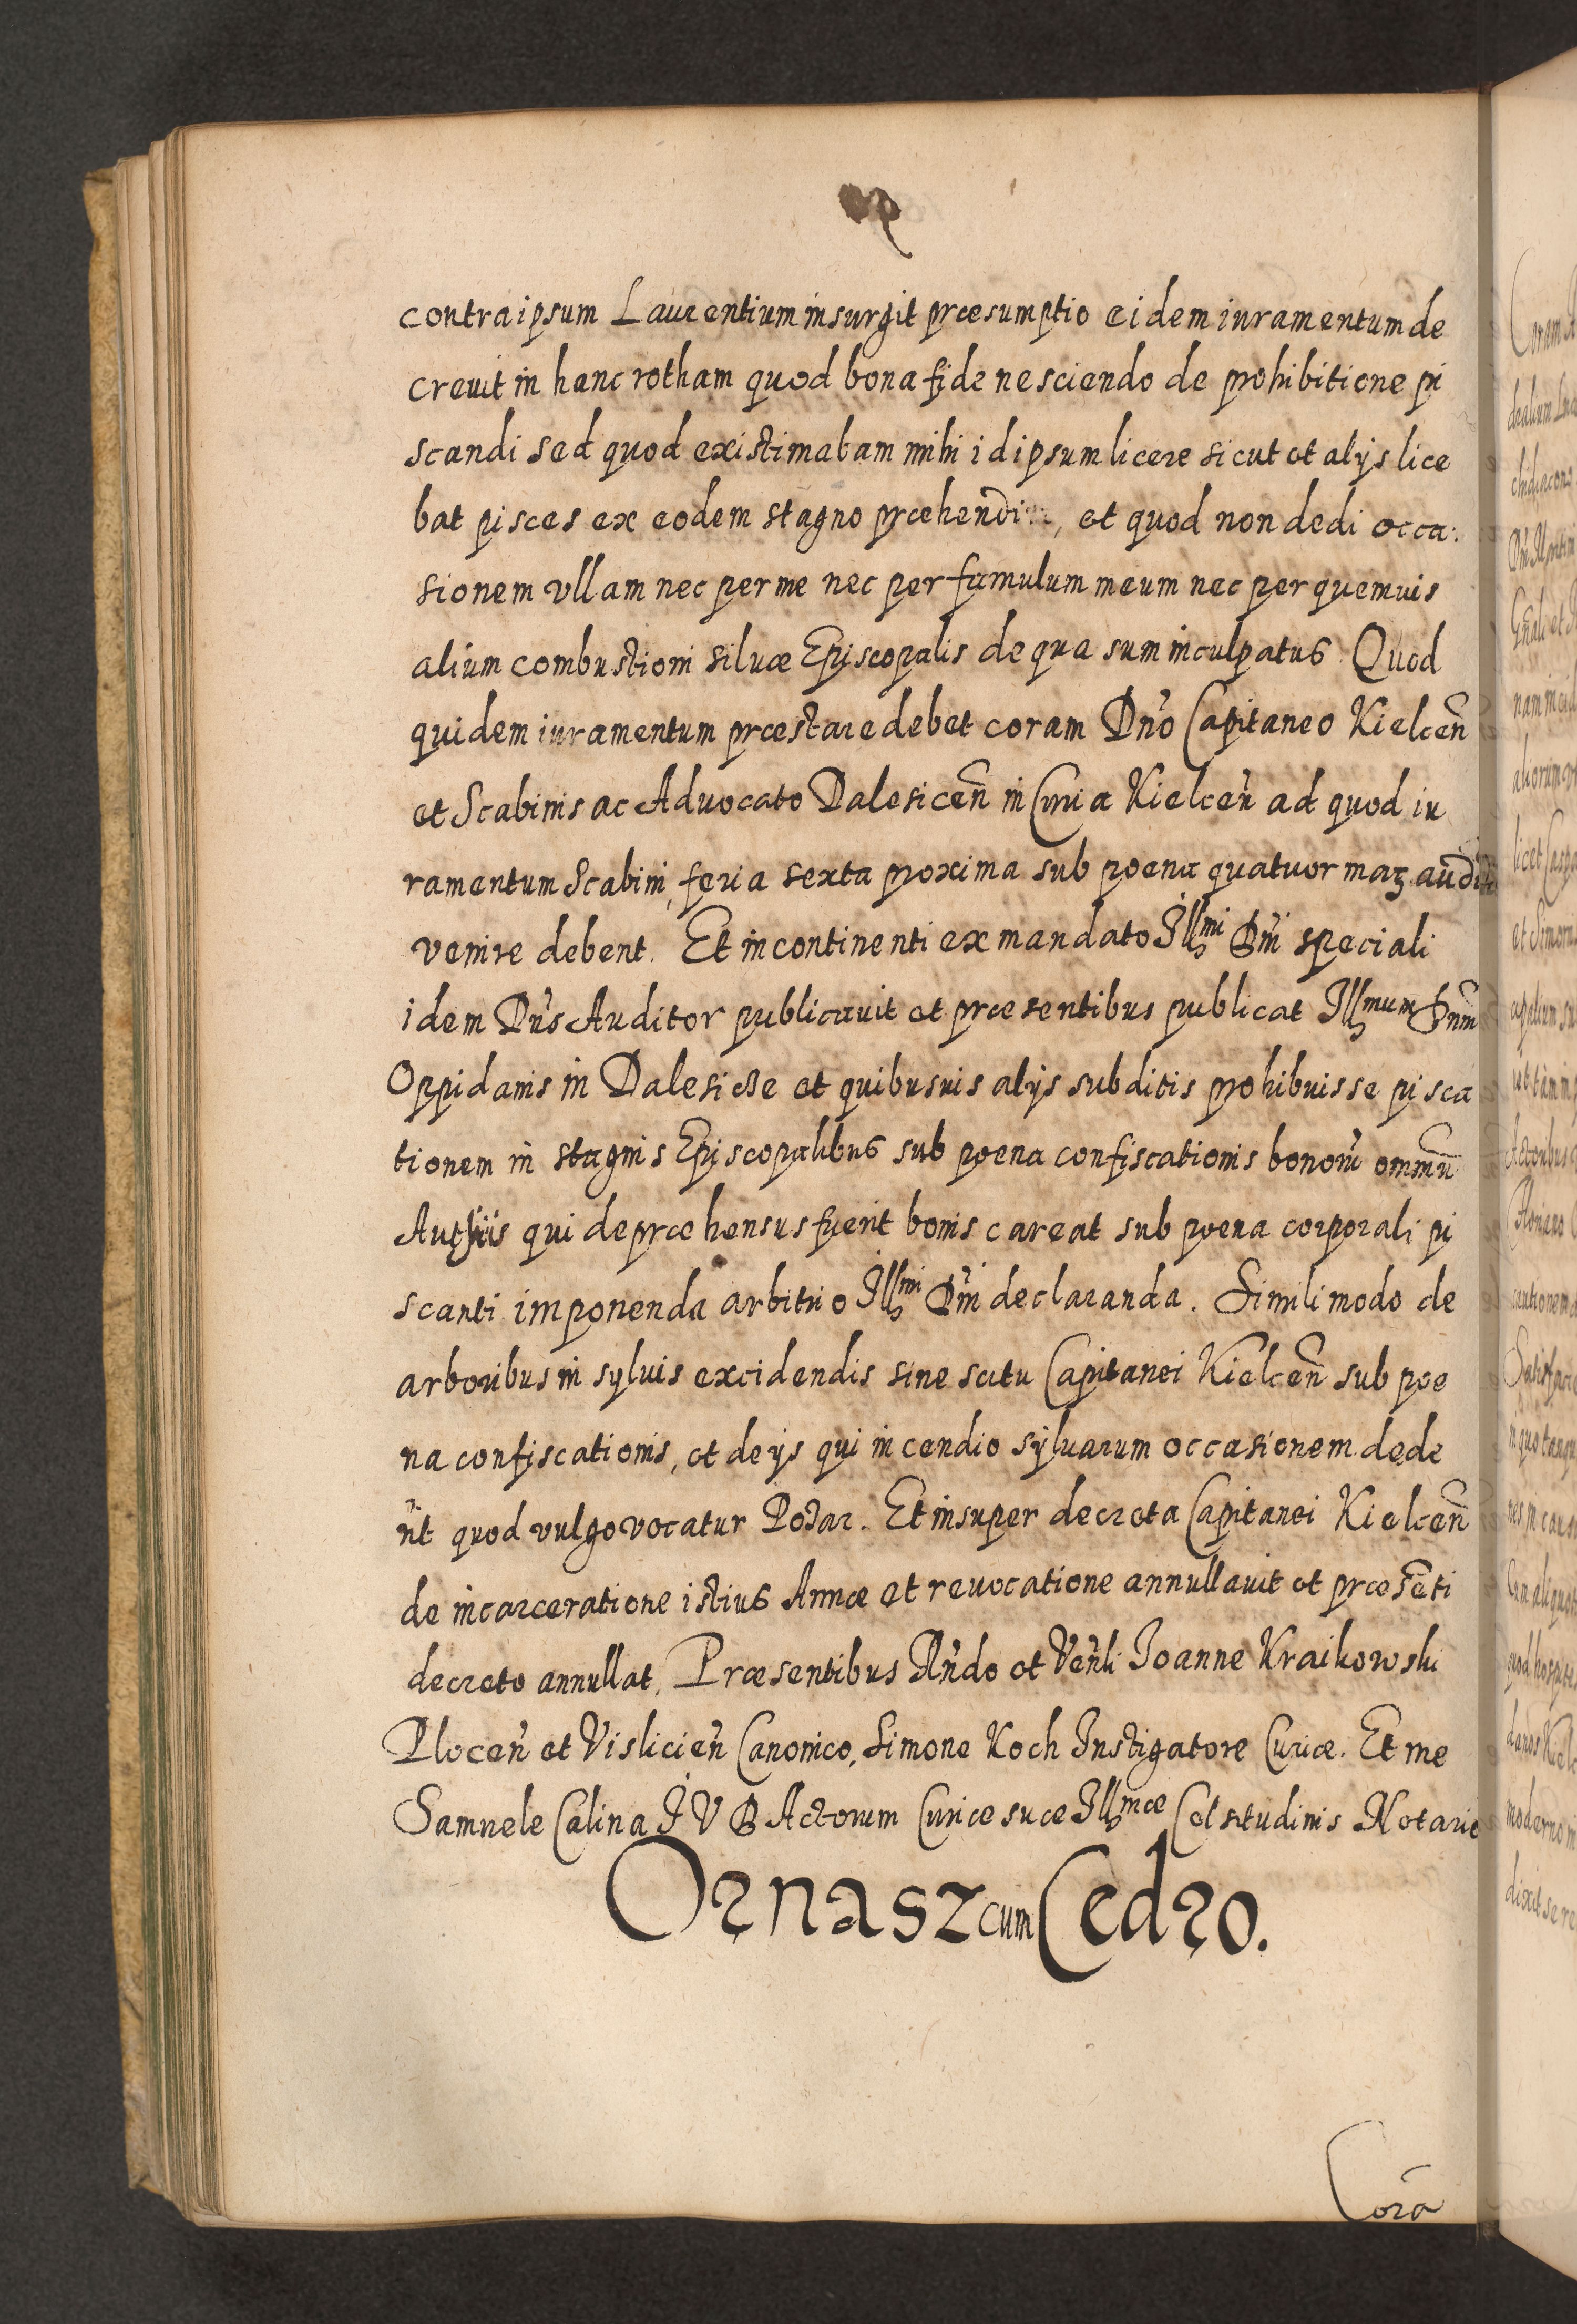 contra ipsum Laurentium insurgit præsumptio eidem iuramentum de
creuit in hanc rotham quod bona fide nesciendo de prohibitione pi
scandi sed quod existimabam mihi id ipsum licere sicut et alijs lice
bat pisces ex eodem stagno præhendi, et quod non dedi occa:
sionem vllam nec per me nec per famulum meum nec per quemuis
alium combustioni siluæ Episcopalis de qua sum inculpatus. Quod
quidem iuramentum præstare debet coram Dn̄o Capitaneo Kielcen̄
et Scabinis ac Aduocato Dalesicen̄ in Curia Kielcen̄ ad quod iu
ramentum Scabini, feria sexta proxima sub poena quatuor
venire debent. Et incontinenti ex mandato Illmi Dn̄i speciali
idem Dn̄s Auditor publicauit et præsentibus publicat Illmum Dnm̄
Oppidanis in Dalesicze et quibusuis alijs subditis prohibuisse pisca
tionem in stagnis Episcopalibus sub poena confiscationis bonorū omniū
qui depræhensus fuerit bonis careat sub poena corporali pi
scanti imponenda arbitrio Illmi Dn̄i declaranda. Simili modo de
arboribus in syluis excidendis sine scitu Capitanei Kielcen̄ sub poe
na confiscationis, et de ijs qui incendio syluarum occasionem dede
rīt quod vulgo vocatur Pożar. Et insuper decreta Capitanei Kielcen̄
de incarceratione istius Annæ et reuocatione annullauit et præsēti
decreto annullat, Præsentibus Rn̄do et Ven̄li Joanne Kraikowski
Plocen̄ et Vislicien̄ Canonico, Simone Koch Instigatore Curiæ. Et me
Samuele Calina J V D Actorum Curiæ suæ Illmæ Celsitudinis Notario
Ornasz cum Cedro.
Corā